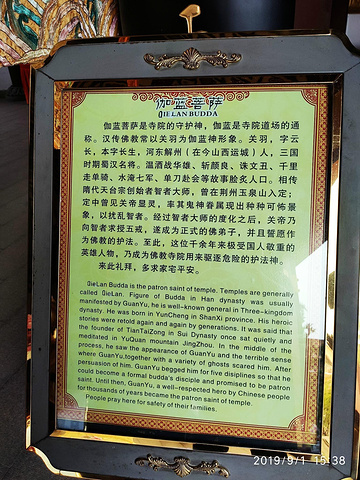 伽蓝菩萨
QIE LAN BUDDA
伽蓝菩萨是寺院的守护神，伽蓝是寺院道场的通
称。汉传佛教常以关羽为伽蓝神形象。关羽，字云
长，本字长生，河东解州（在今山西运城）人，三国
时期蜀汉名将。温酒战华雄、斩颜良、诛文丑、千里
走单骑、水淹七军、单刀赴会等故事脍炙人口。相传
隋代天台宗创始者智者大师，曾在荆州玉泉山入定；
定中曾见关帝显灵，率其鬼神眷属现出种种可怖景
象，以扰乱智者。经过智者大师的度化之后，关帝乃
向智者求授五戒，遂成为正式的佛弟子，并且誓愿作
为佛教的护法。至此，这位千余年来极受国人敬重的
英雄人物，乃成为佛教寺院用来驱逐危险的护法神。
来此礼拜，多求家宅平安。
QieLan Budda is the patron saint of temple. Temples are generally
called QieLan. Figure of Budda in Han dynasty was usually
manifested by GuanYu, he is well-known general in Three-kingdom
dynasty. He was born in YunCheng in ShanXi province. His heroic
stories were retold again and again by generations. It was said that
the founder of TianTaiZong in Sui Dynasty once sat quietly and
meditated in YuQuan mountain JingZhou. In the middle of the
process, he saw the appearance of GuanYu and the terrible sense
where GuanYu,together with a variety of ghosts scared him. After
persuasion of him. GuanYu begged him for five disiplines so that he
could become a formal budda's disciple and promised to be patron
saint. Until then, GuanYu, a well-respected hero by Chinese people
for thousands of years became the patron saint of temple.
People pray here for safety of their families.
2019/9/1 15:38